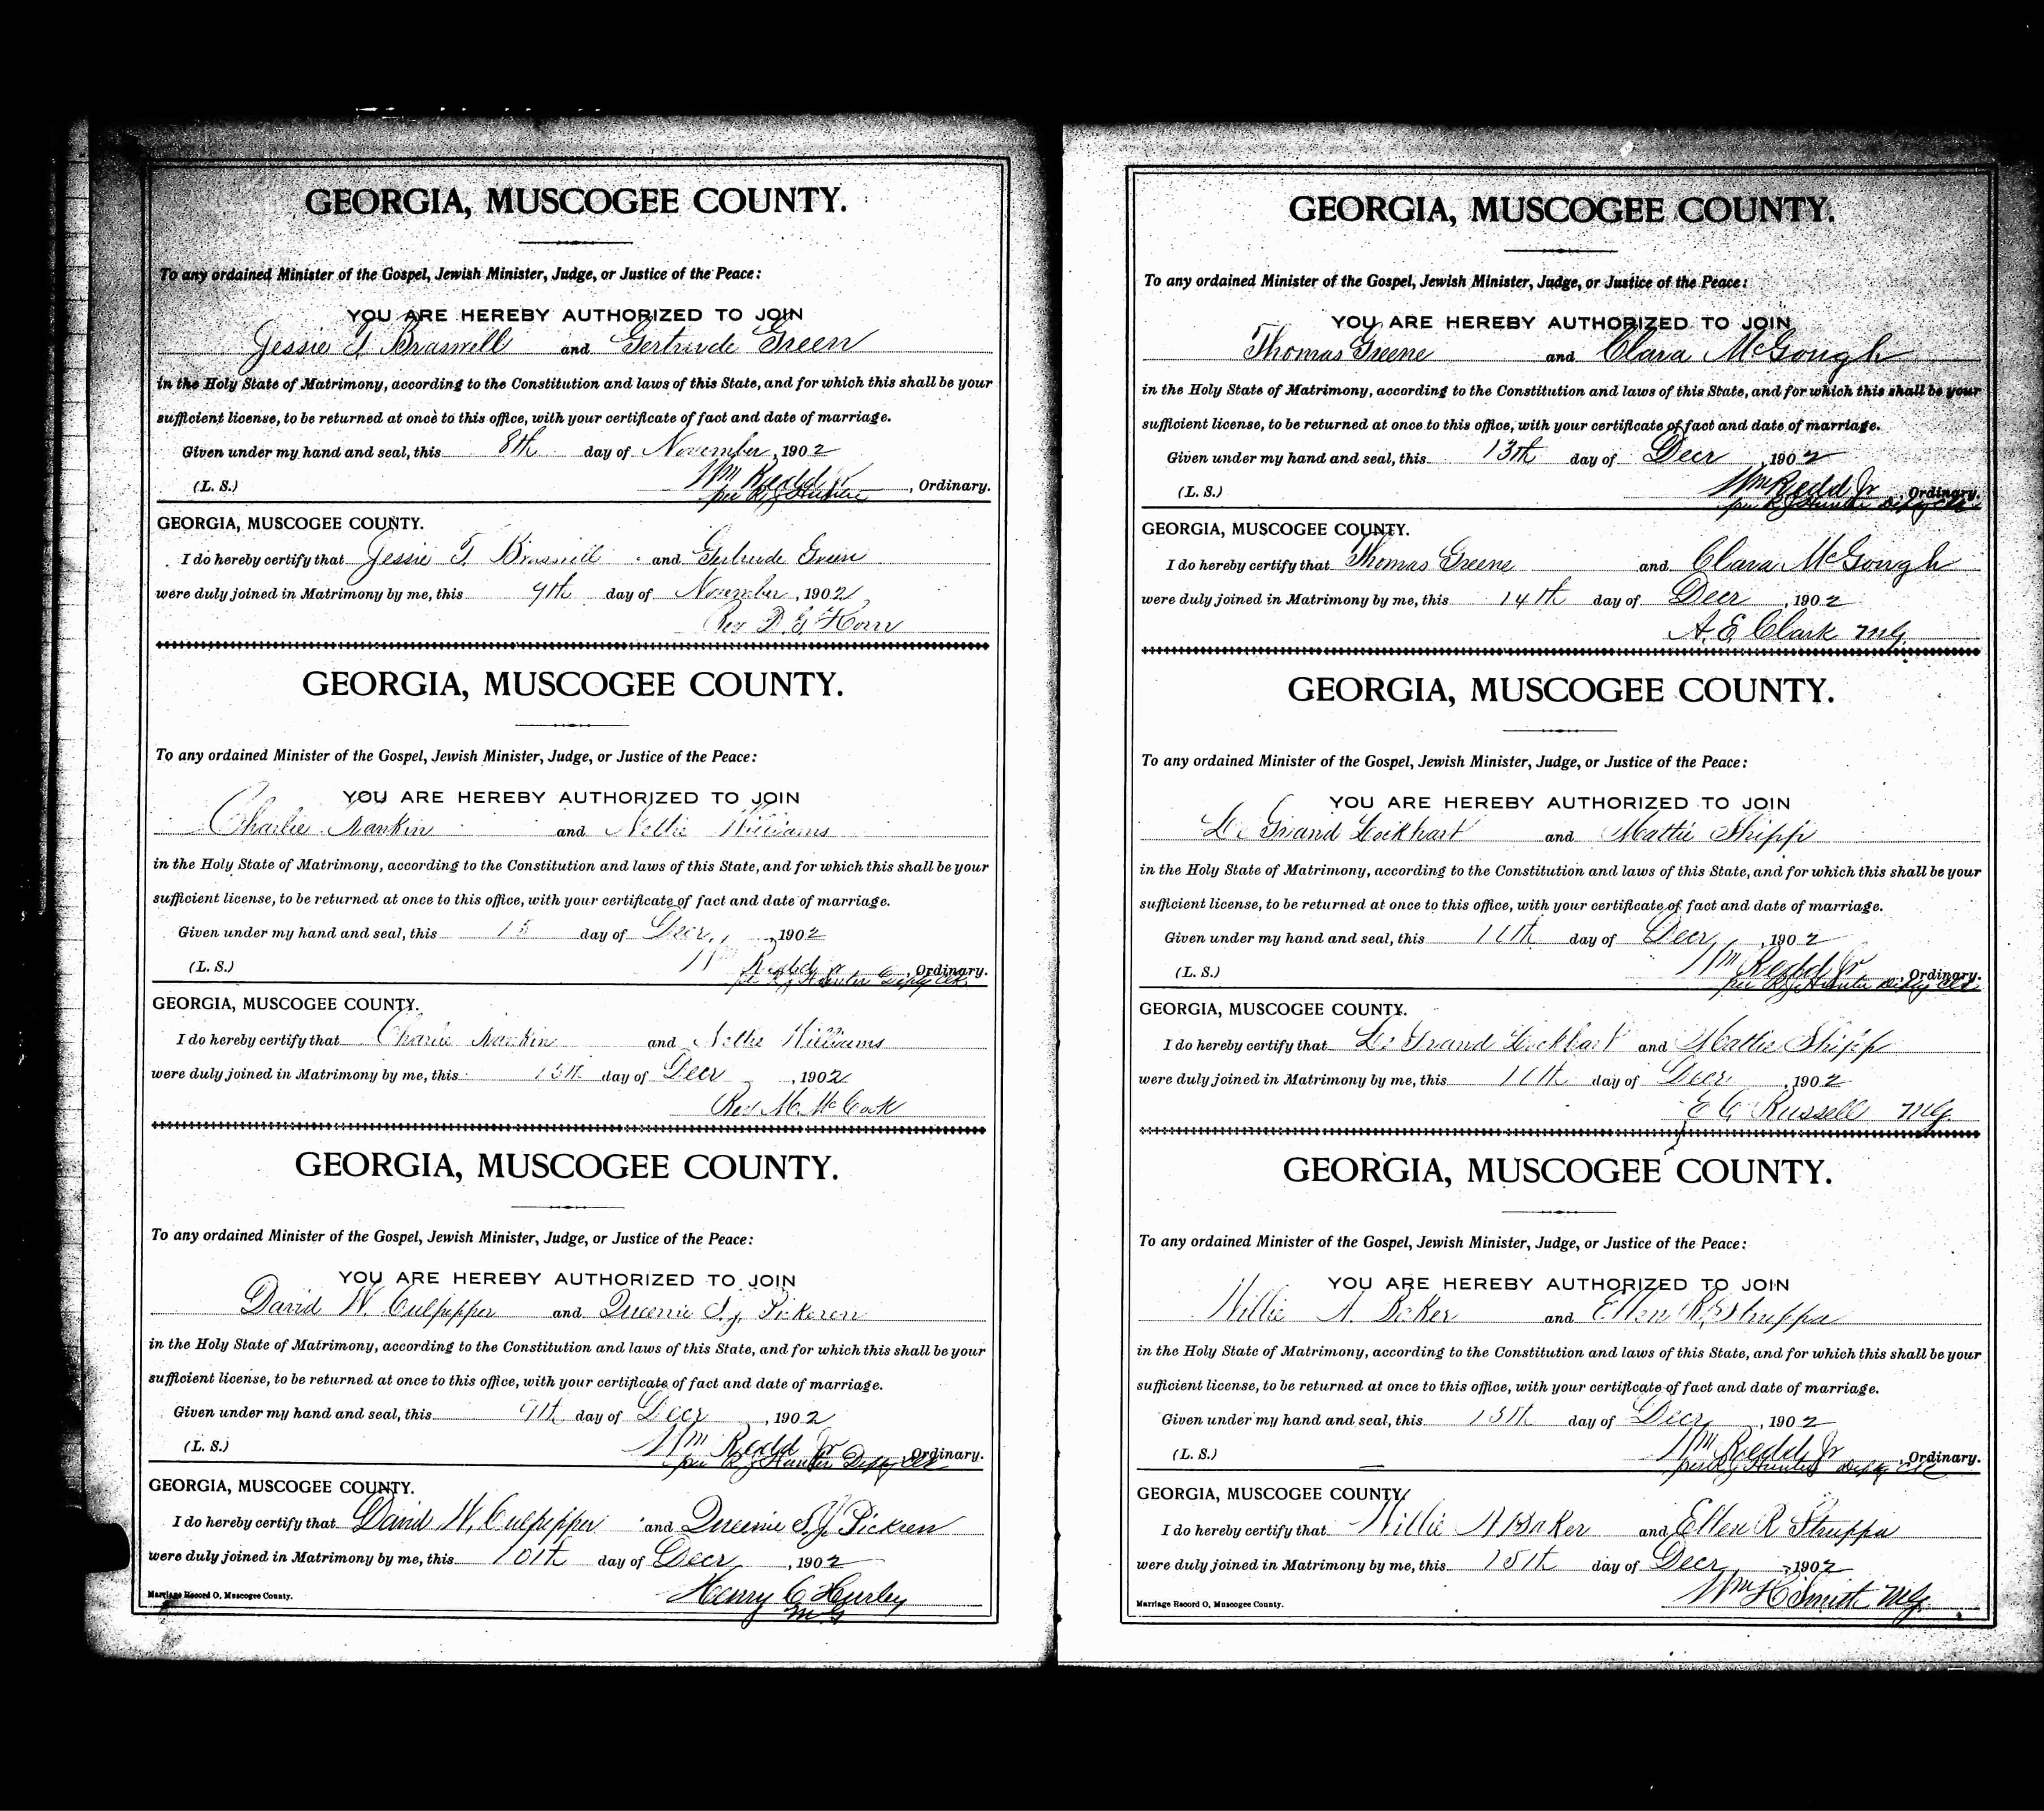 GEORGIA, MUSCOGEE COUNTY.
To any ordained Minister of the Gospel, Jewish Minister, Judge, or Justice of the Peace:
YOU ARE HEREBY AUTHORIZED TO JOIN
Jessie T. Braswell and Gertrude Green
in the Holy State of Matrimony, according to the Constitution and laws of this State, and for which this shall be your
sufficient license, to be returned at once to this office, with your certificate of fact and date of marriage.
Given under my hand and seal, this 8th day of November, 1902
(L. S.) Wm Redd Jr , Ordinary.
per R J Hunter
GEORGIA, MUSCOGEE COUNTY.
I do hereby certify that Jessie T. Braswell and Gertrude Green
were duly joined in Matrimony by me, this 9th day of November, 1902
Rev
GEORGIA, MUSCOGEE COUNTY.
To any ordained Minister of the Gospel, Jewish Minister, Judge, or Justice of the Peace:
YOU ARE HEREBY AUTHORIZED TO JOIN
Charlie Rankin and Nettie Williams
in the Holy State of Matrimony, according to the Constitution and laws of this State, and for which this shall be your
sufficient license, to be returned at once to this office, with your certificate of fact and date of marriage.
Given under my hand and seal, this day of Decr, 1902
(L. S.) Wm Redd Jr , Ordinary.
per R J Hunter Depty Clk
GEORGIA, MUSCOGEE COUNTY.
I do hereby certify that Charlie Rankin and Nettie Williams
were duly joined in Matrimony by me, this day of Decr , 1902
Rev M. McCook
GEORGIA, MUSCOGEE COUNTY.
To any ordained Minister of the Gospel, Jewish Minister, Judge, or Justice of the Peace:
YOU ARE HEREBY AUTHORIZED TO JOIN
David W. Culpepper and Queenie S. J. Pickeren
in the Holy State of Matrimony, according to the Constitution and laws of this State, and for which this shall be your
sufficient license, to be returned at once to this office, with your certificate of fact and date of marriage.
Given under my hand and seal, this 9th day of Decr , 1902
(L. S.) Wm Redd Jr Ordinary.
per R J Hunter Depty Clk
GEORGIA, MUSCOGEE COUNTY.
I do hereby certify that David W. Culpepper and Queenie S. J. Pickren
were duly joined in Matrimony by me, this 10th day of Decr , 1902
Henry C Hurley
MG
Marriage Record O, Muscogee County.
GEORGIA, MUSCOGEE COUNTY.
To any ordained Minister of the Gospel, Jewish Minister, Judge, or Justice of the Peace:
YOU ARE HEREBY AUTHORIZED TO JOIN
Thomas Greene and Clara McGough
in the Holy State of Matrimony, according to the Constitution and laws of this State, and for which this shall be your
sufficient license, to be returned at once to this office, with your certificate of fact and date of marriage.
Given under my hand and seal, this 13th day of Decr , 1902
(L. S.) Wm Redd Jr , Ordinary.
per R J Hunter Depty Clk
GEORGIA, MUSCOGEE COUNTY.
I do hereby certify that Thomas Greene and Clara McGough
were duly joined in Matrimony by me, this 14th day of Decr , 1902
A. E. Clark MG
GEORGIA, MUSCOGEE COUNTY.
To any ordained Minister of the Gospel, Jewish Minister, Judge, or Justice of the Peace:
YOU ARE HEREBY AUTHORIZED TO JOIN
Le Grand Lockhart and Mattie Shipp
in the Holy State of Matrimony, according to the Constitution and laws of this State, and for which this shall be your
sufficient license, to be returned at once to this office, with your certificate of fact and date of marriage.
Given under my hand and seal, this 11th day of Decr , 1902
(L. S.) Wm Redd Jr , Ordinary.
per R J Hunter Depty Clk
GEORGIA, MUSCOGEE COUNTY.
I do hereby certify that Le Grand Lockhart and Mattie Shipp
were duly joined in Matrimony by me, this 11th day of Decr. , 1902
E C Russell MG.
GEORGIA, MUSCOGEE COUNTY.
To any ordained Minister of the Gospel, Jewish Minister, Judge, or Justice of the Peace:
YOU ARE HEREBY AUTHORIZED TO JOIN
Willie A. Baker and Ellen R. Struppa
in the Holy State of Matrimony, according to the Constitution and laws of this State, and for which this shall be your
sufficient license, to be returned at once to this office, with your certificate of fact and date of marriage.
Given under my hand and seal, this day of Decr , 1902
(L. S.) Wm Redd Jr , Ordinary.
per R J Hunter Depty Clk
GEORGIA, MUSCOGEE COUNTY
I do hereby certify that Willie A Baker and Ellen R Struppa
were duly joined in Matrimony by me, this 15th day of Decr , 1902
Wm H Smith MG.
Marriage Record O, Muscogee County.